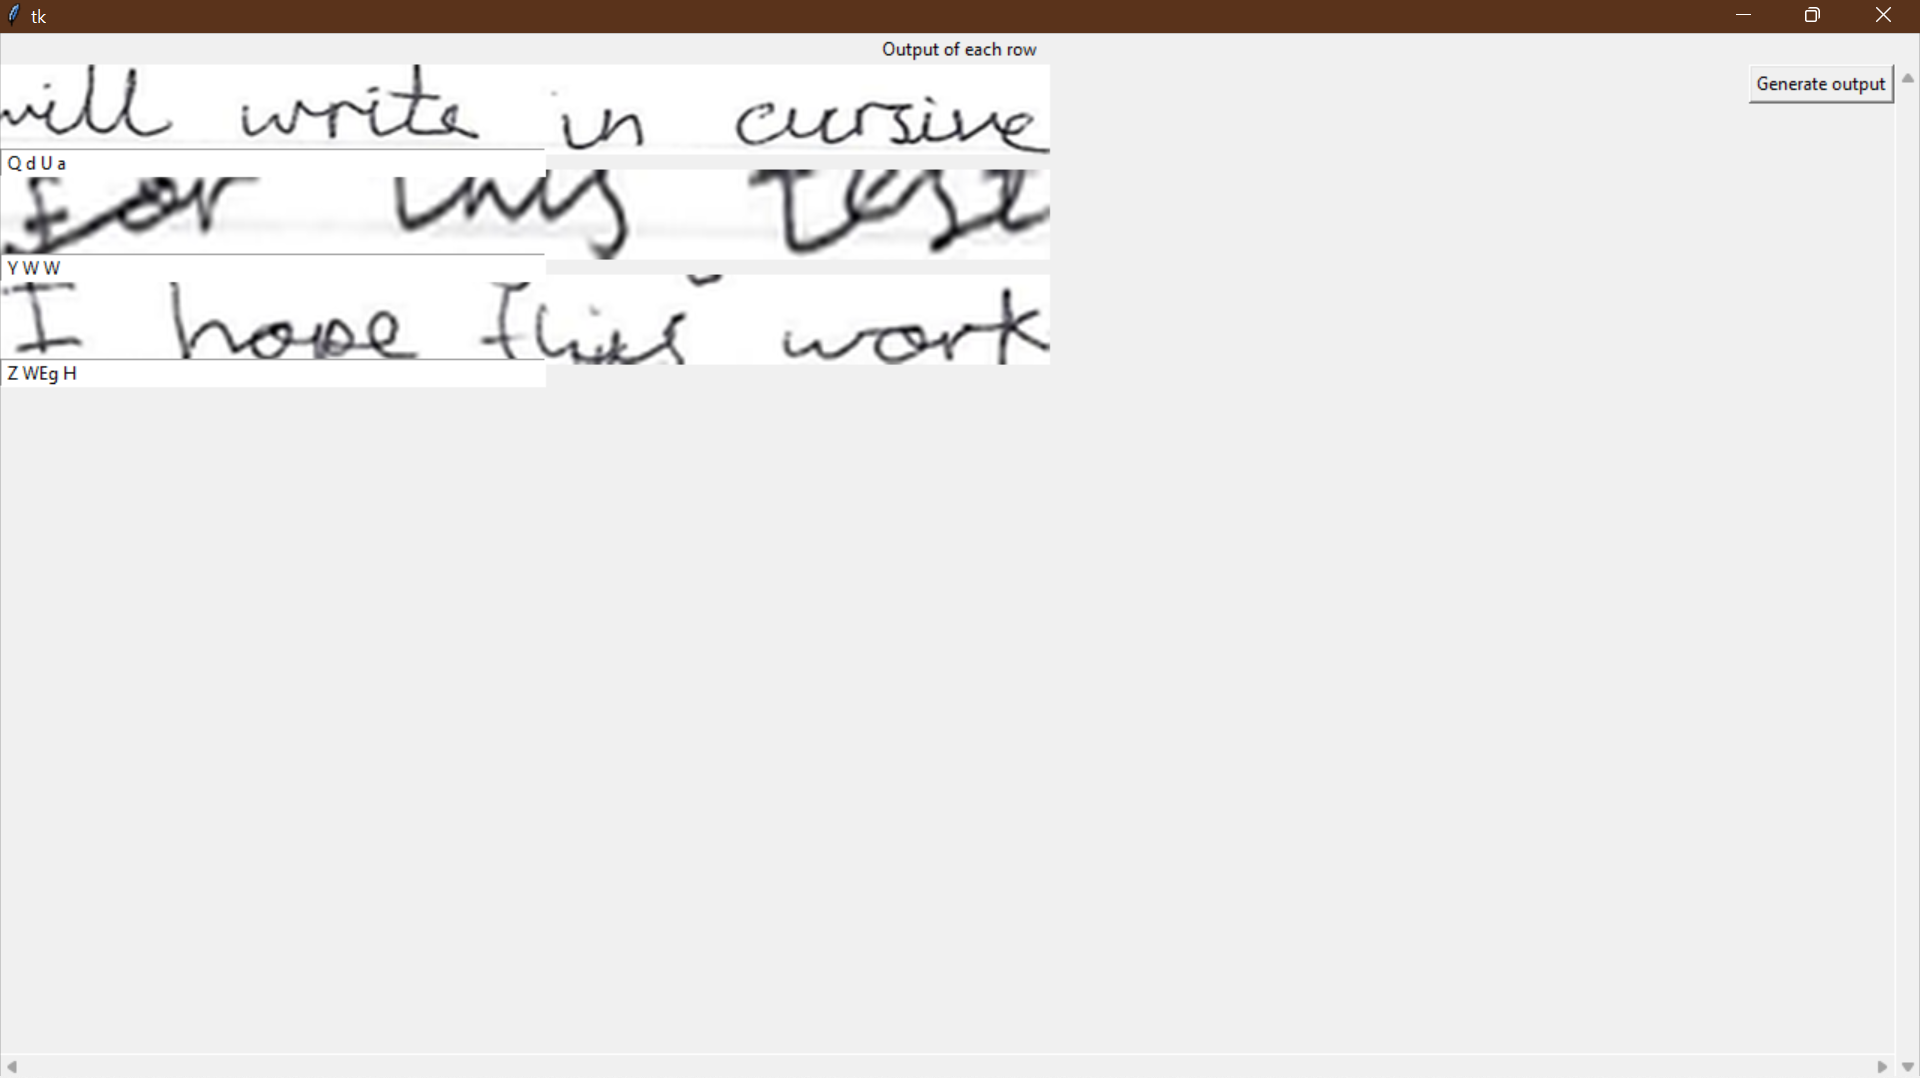 tk
Output of each row
Generate output
will write in cursive
Q d U a
for this test
Y W W
I hope this work
Z WEg H